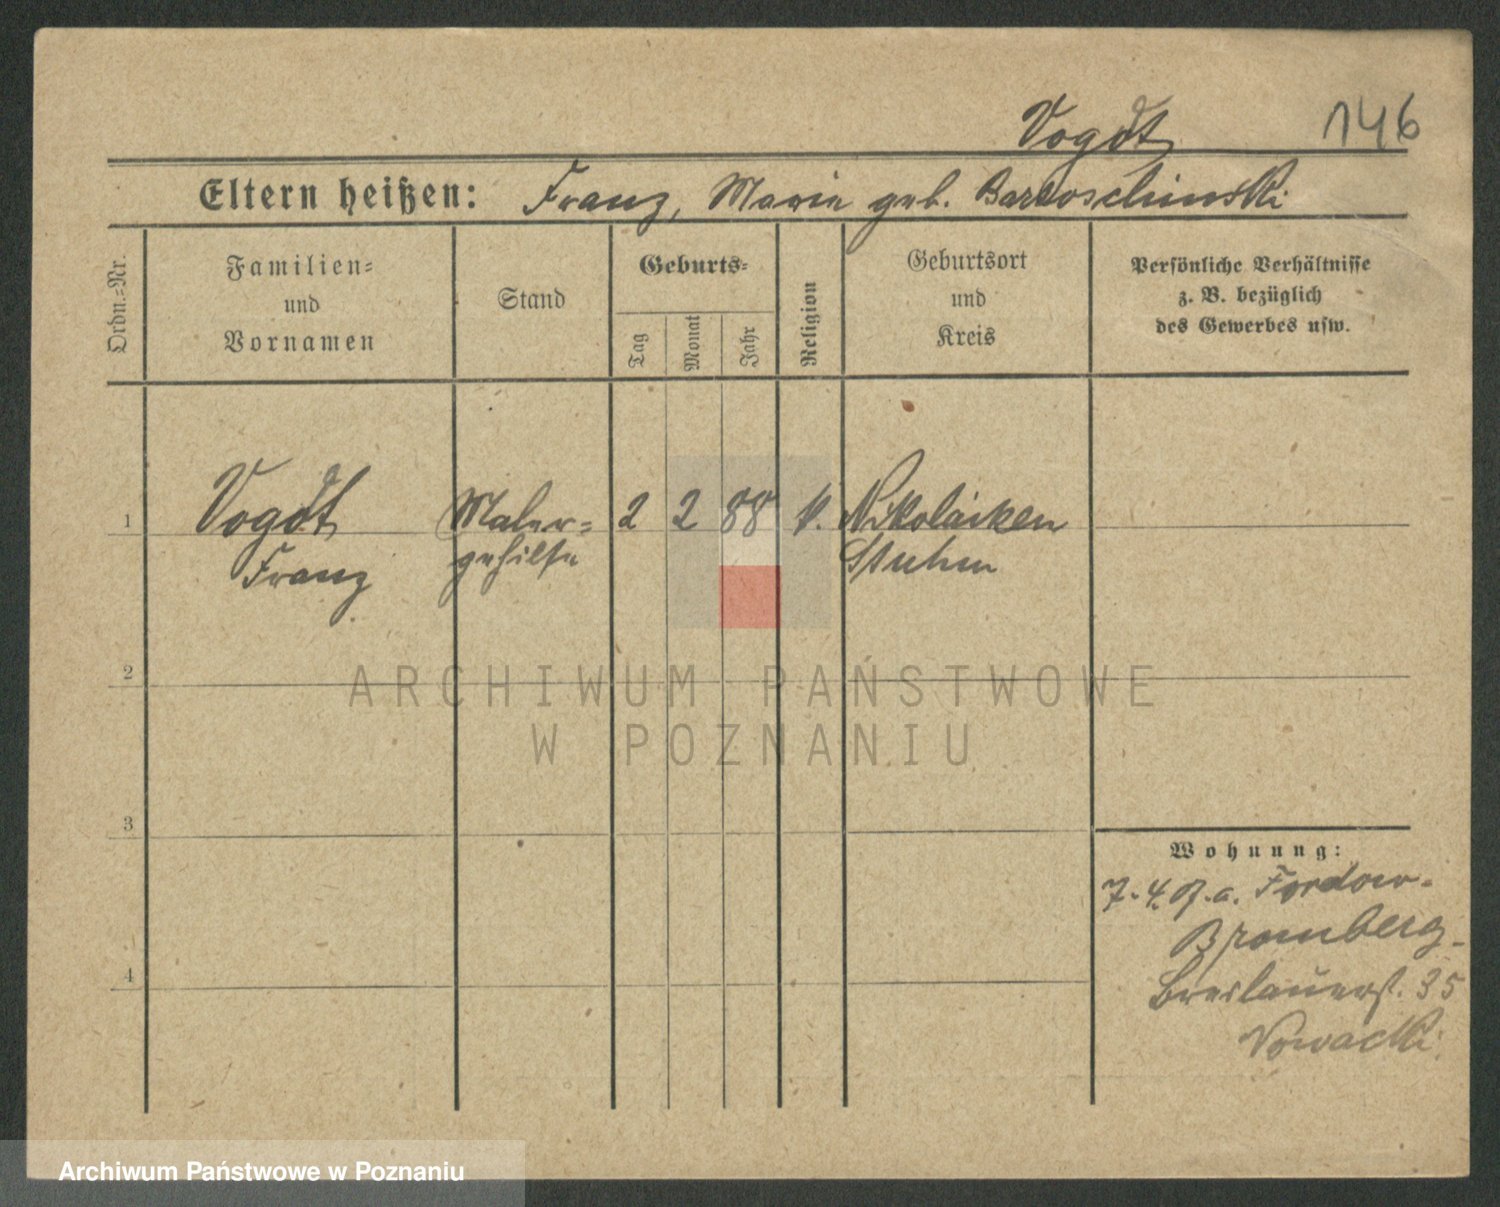 Vogdt
146
Eltern heißen: Franz, Marie geb. Bartoschinski
Ordn.-Nr.
Familien-
und
Vornamen
Stand
Geburts-
Tag
Monat
Jahr
Religion
Geburtsort
und
Kreis
Persönliche Verhältnisse
z. B. bezüglich
des Gewerbes usw.
1
Vogdt
Franz
Maler-
gehilfe
2
2
88
k.
Nikolaiken
Stuhm
2
3
4
Wohnung:
7.4. a. Fordon-
Bromberg-
Breslauerst. 35
Nowacki
ARCHIWUM PAŃSTWOWE
W POZNANIU
Archiwum Państwowe w Poznaniu